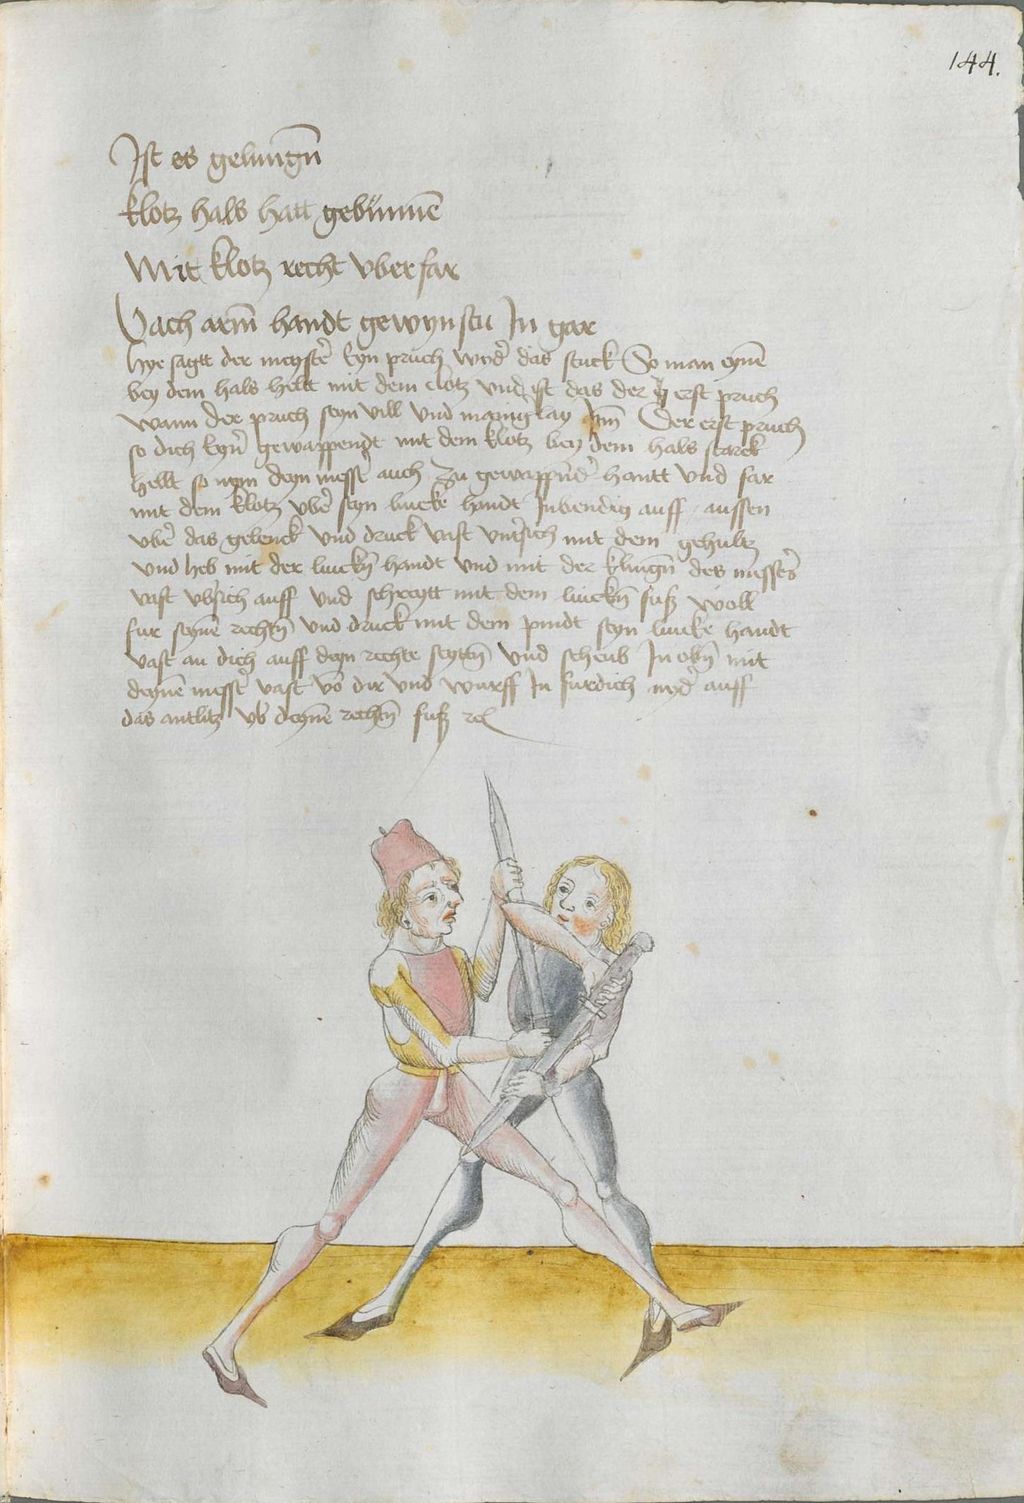 144.
Ist es gelungn̄
klotz hals hatt gebünnē
Mit klotz recht vber far
Nach arm̄ handt gewynstu In gar
Hye sagtt der meystˀ Eyn pruch wydˀ das stuck So man eynē
bey dem hals helt mit dem clotz vnd ist das der erst pruch
wann der pruch seyn vill vnd manig lay Der erst pruch
so dich Eynˀ gewappendt mit dem klotz bey dem hals starck
hellt so nym deyn messˀ auch zu gewappndˀ hantt vnd far
mit dem klotz vbˀ seyn lincke handt Inbendig auff aussen
vbˀ das gelenck vnd druck vast vntˀsich mit dem gehultz
vnd heb mit der linckn̄ handt vnd mit der klingn̄ des messˀs
vast vbˀsich auff vnd schreytt mit dem linckn̄ fuß woll
fur seynē rechtn̄ vnd druck mit dem pindt seyn lincke handt
vast an dich auff deyn rechte seyttn̄ vnd scheub In obn̄ mit
deynē messˀ vast vō dir vnd wurff In furdich nydˀ auff
das antlitz vbˀ deynē rechtn̄ fuß